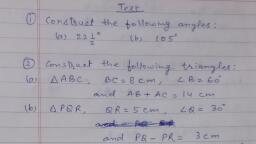 Test
① Construct the following angles:
(a) 22 1/2° (b) 105°
② Construct the following triangles:
(a) △ABC, BC = 8 cm, ∠B = 60°
and AB + AC = 14 cm
(b) △PQR, QR = 5 cm, ∠Q = 30°
and PQ - PR = 3 cm